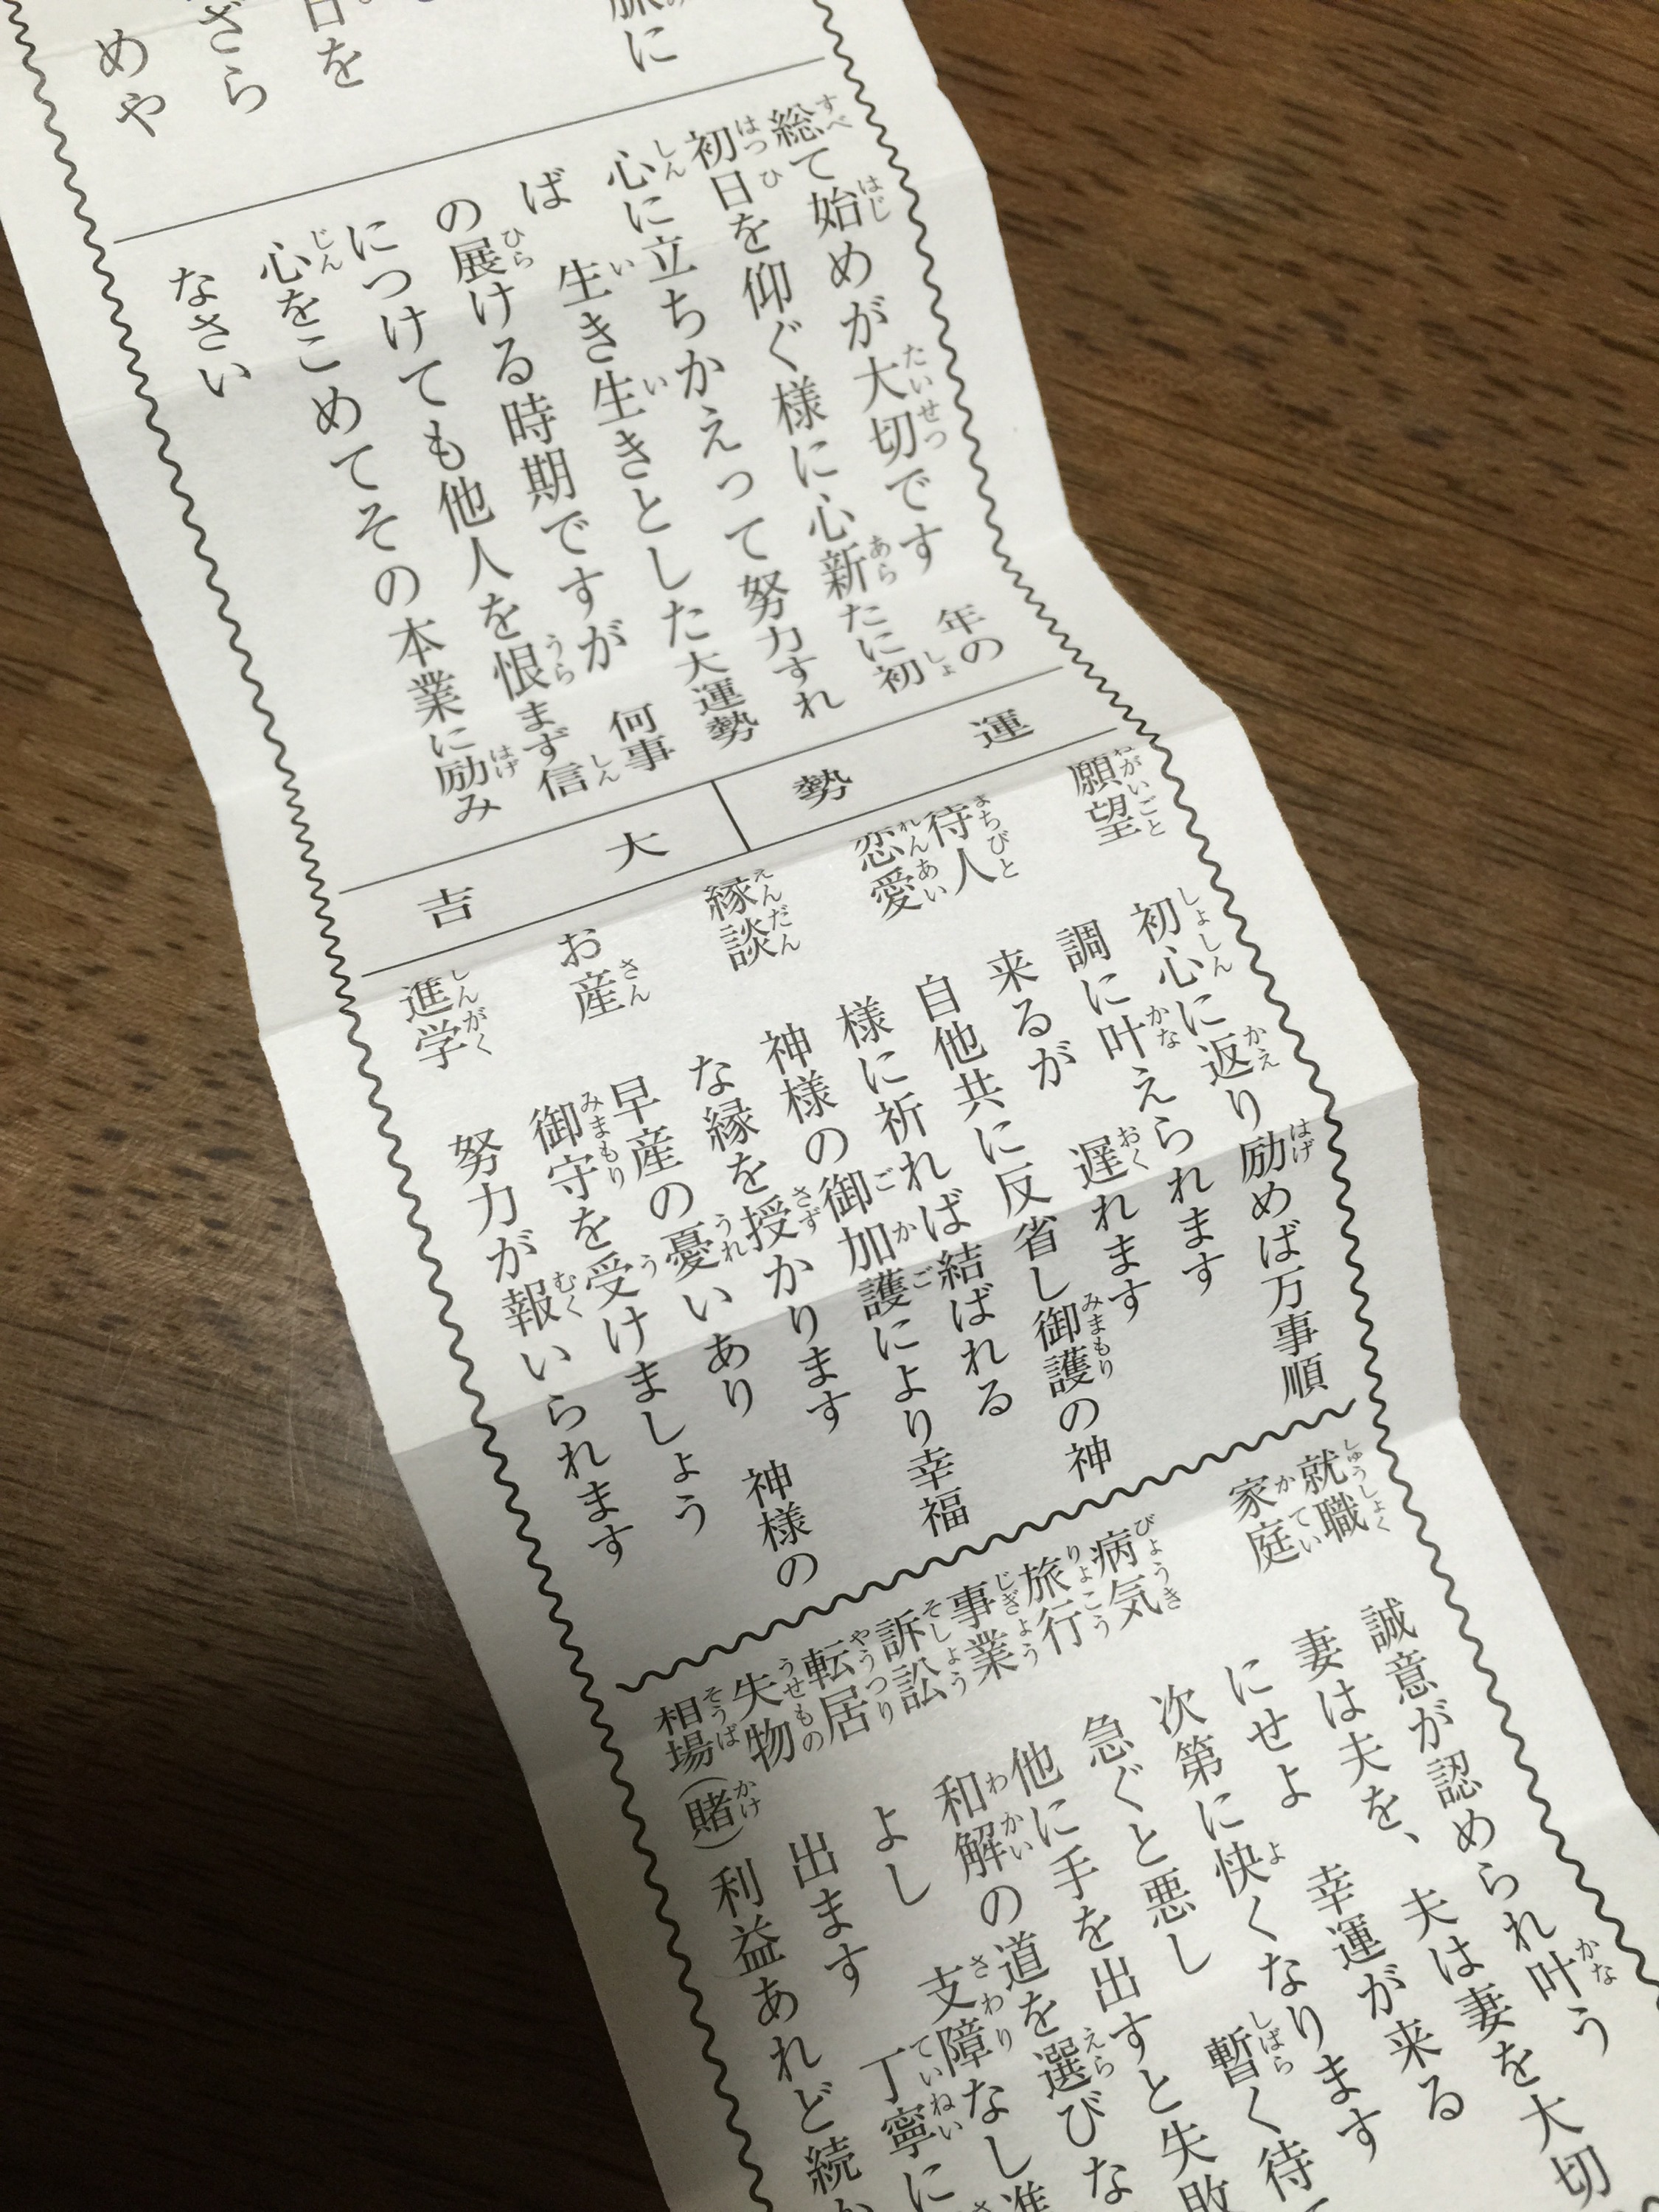 脈に
日を
ざら
めや
総て始めが大切です　年の
初日を仰ぐ様に心新たに初
心に立ちかえって努力すれ
ば　生き生きとした大運勢
の展ける時期ですが　何事
につけても他人を恨まず信
心をこめてその本業に励み
なさい
運勢
大吉
願望　初心に返り励めば万事順
調に叶えられます
待人　来るが　遅れます
恋愛　自他共に反省し御護の神
様に祈れば結ばれる
縁談　神様の御加護により幸福
な縁を授かります
お産　早産の憂いあり　神様の
御守を受けましょう
進学　努力が報いられます
就職　誠意が認められ叶う
家庭　妻は夫を、夫は妻を大切
にせよ　幸運が来る
病気　次第に快くなります
旅行　急ぐと悪し　暫く待て
事業　他に手を出すと失敗
訴訟　和解の道を選びな
転居　よし　支障なし進
失物　出ます　丁寧に
相場(賭)　利益あれど続か